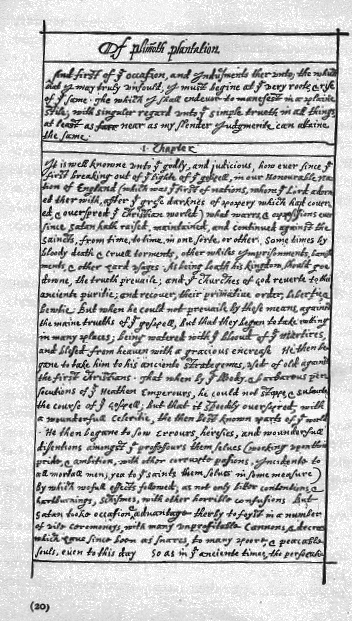 Of plimoth plantation.
And first of yͤ occasion, and Indusments ther unto; the which
that I may truly unfould, I must begine at yͤ very roote, & rise
of yͤ same. The which I shall endevor to manefest in a plaine
stile; with singuler regard unto yͤ simple trueth in all things,
at least as far near as my slender Judgmente can attaine
the same.
1. Chapter
It is well knowne unto yͤ godly, and judicious, how ever since yͤ
first breaking out of yͤ lighte of yͤ gospell, in our Honourable na-
tion of England (which was yͤ first of nations, whom yͤ Lord adorn-
ed ther with, after yͤ grose darknes of popery which had cover-
ed, & overspred yͤ christian world) what warrs, & oppossions ever
since satan hath raised, maintained, and continued against the
saincts, from time, to time, in one sorte, or other. Some times by
bloody death & cruell torments, other whiles Imprisonments, banish-
ments, & other hard usages. As being loath his kingdom should goe
downe, the trueth prevaile; and yͤ Churches of God reverte to their
anciente puritie; and recover, their primative order, libertie, &
bewtie. But when he could not prevaile by these means, against
the maine trueths of yͤ gospell, but that they began to take rooting
in many places; being watered with yͤ bloud of yͤ Martires,
and blesed from heaven with a gracious encrease. He then be-
gane to take him to his anciente strategemes, used of old against
the first christians. That when by yͤ Bloody, & barbarous per-
secutions of yͤ Heathen Emperours, he could not stoppe, & subverte
the course of yͤ gospell; but that it speedily overspred, with
a wounderfull celeritie, the then best known parts of yͤ world.
He then began to sow errours, heresies, and wounderfull
disentions amongst yͤ professours them selves (working upon their
pride, & ambition, with other corrupte passions, Incidente to
all mortall men; yea to yͤ saints them selves in some measure)
By which wofull effects followed; as not only bitter contentions, &
hartburnings, schismes, with other horrible confusions. But
Satan tooke occasion & advantage therby to foyst in a number
of vile ceremoneys, with many unprofitable Cannons, & decrees
which have since been as snares, to many poore, & peacable
souls, even to this day. So as in yͤ anciente times, the persecuti-
(20)